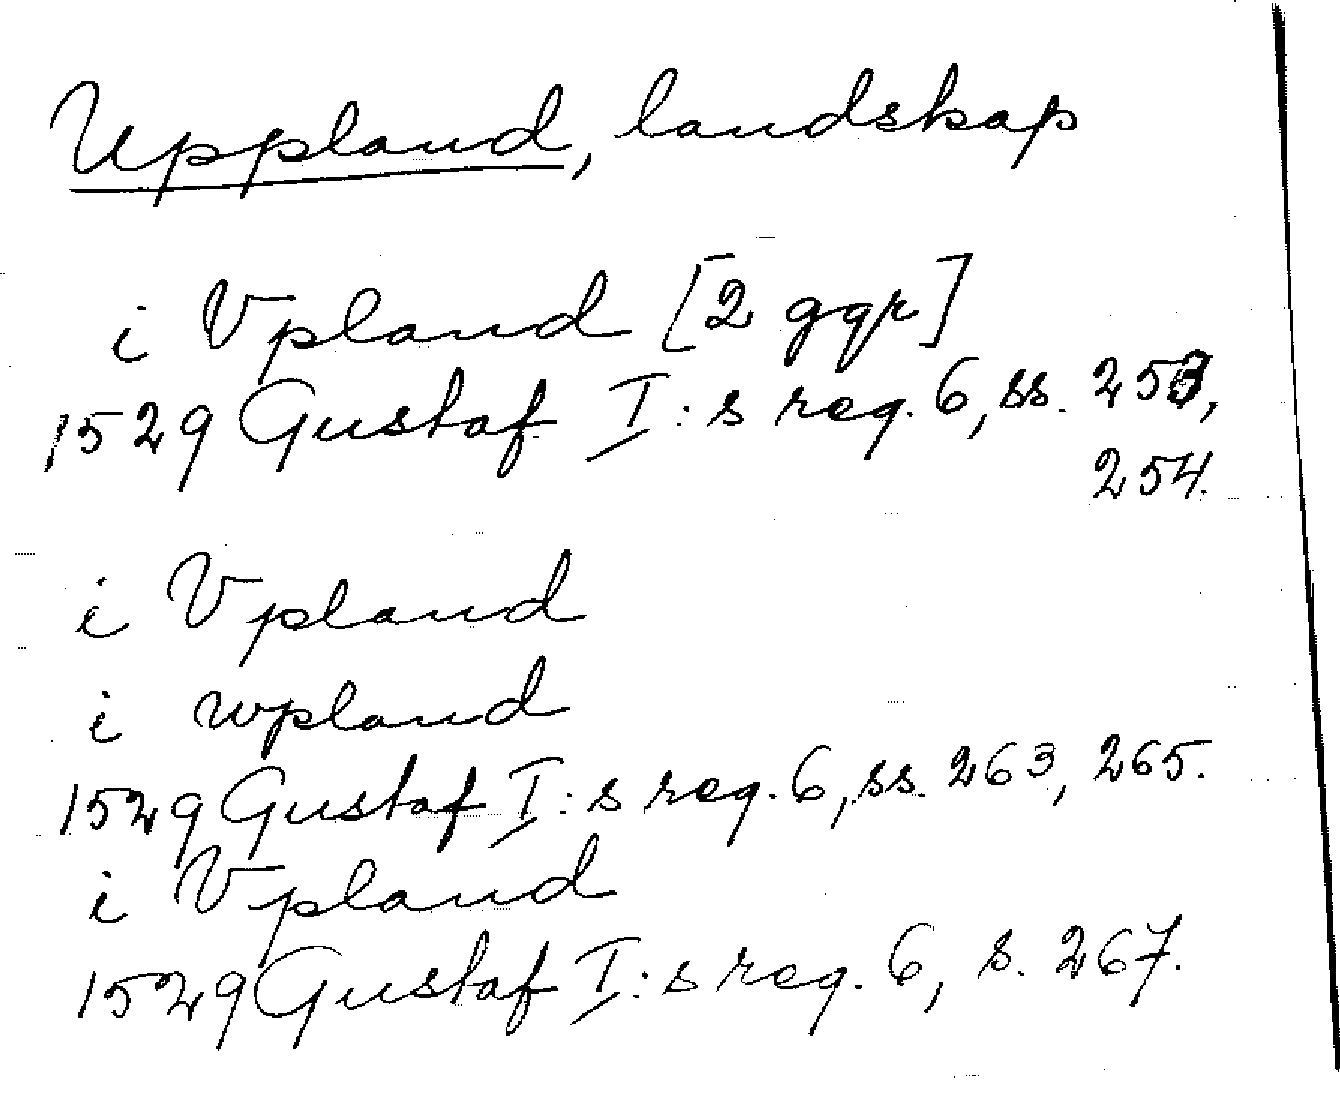 Uppland, landskap
i Vpland [2 ggr]
1529 Gustaf I:s reg. 6, ss. 253,
254.
i Vpland
i wpland
1529 Gustaf I:s reg. 6, ss. 263, 265.
i Vpland
1529 Gustaf I:s reg. 6, s. 267.